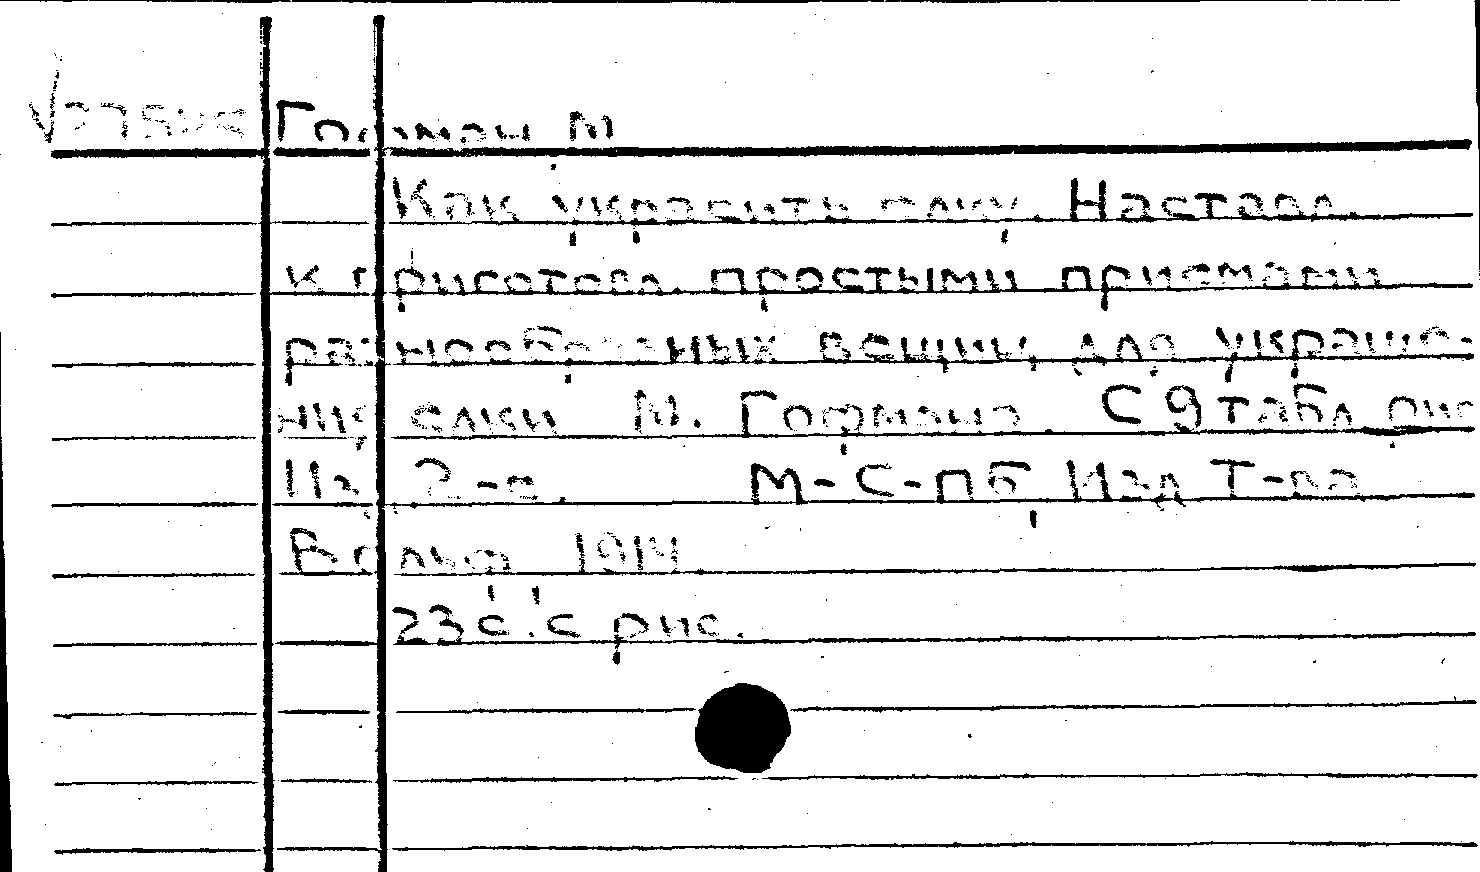 Гофман М
Как украсить елку. Наставл.
к приготовл. простыми приемами
разнообразных вещиц для украше-
ния елки М. Гофмана. С 9 табл рис
Изд 2-е. М-С-Пб Изд Т-ва
Вольф 1914.
23 с. с рис.